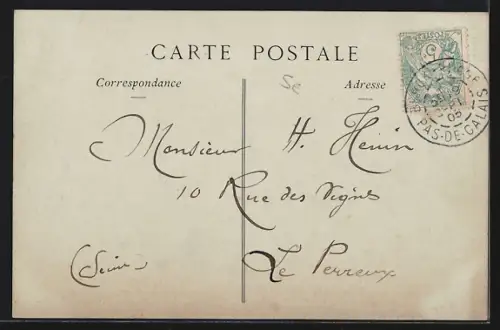 CARTE POSTALE
Correspondance
Adresse
Se
Monsieur H. Henin
10 Rue des Vignes
(Seine) Le Perreux
PAS-DE-CALAIS
05
5